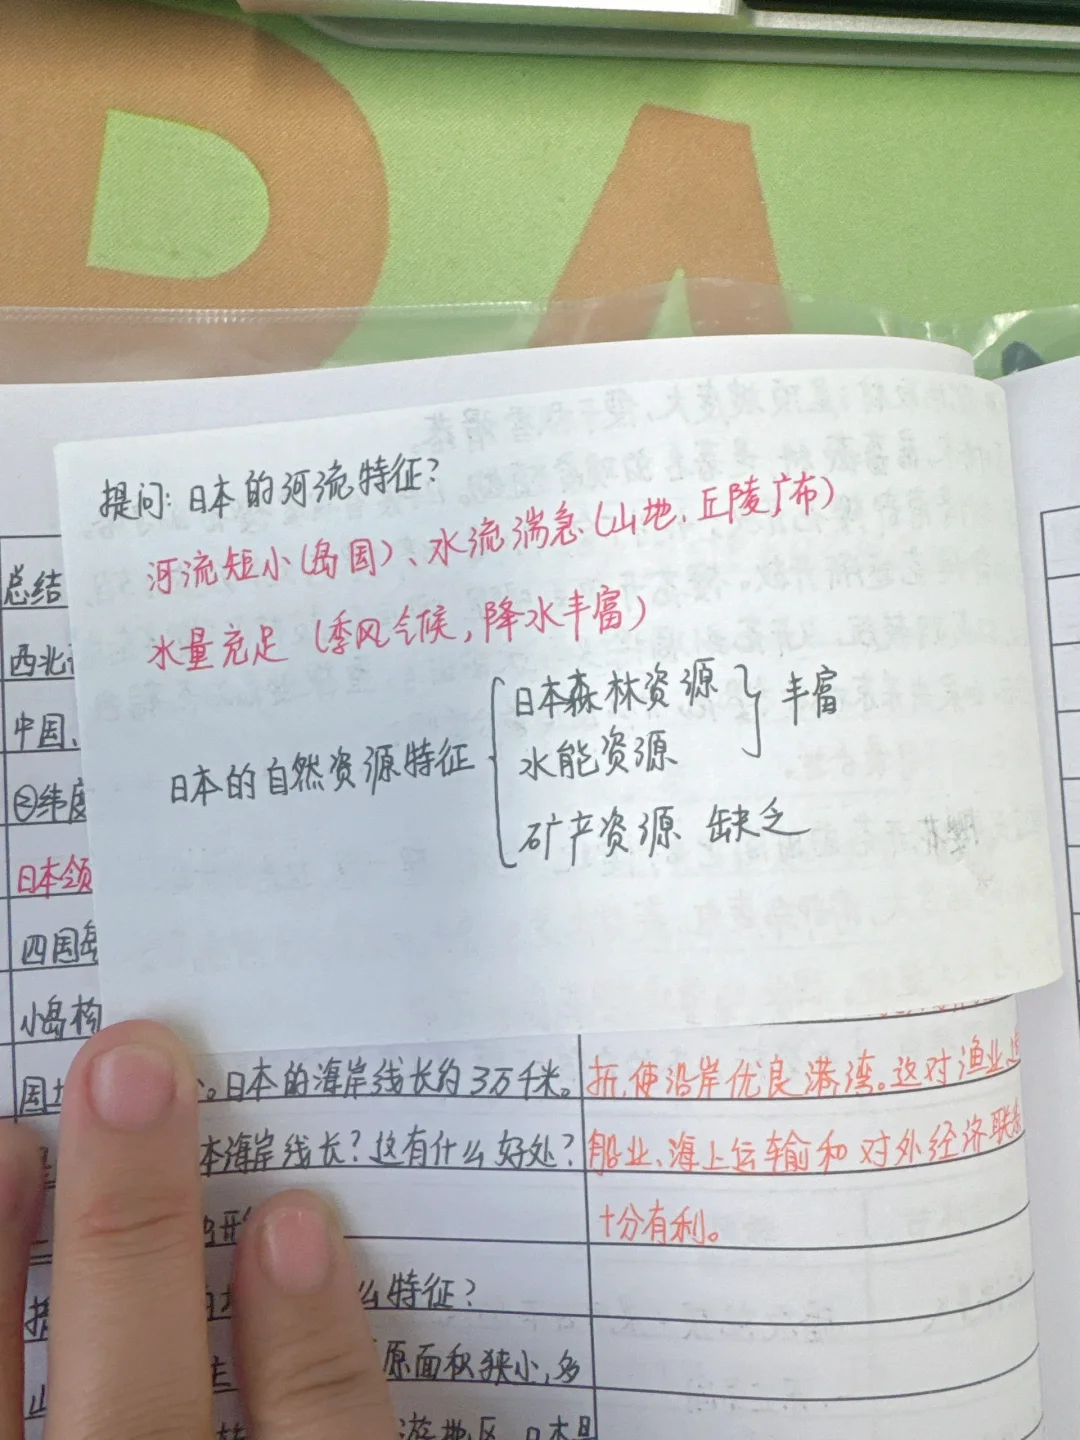 提问：日本的河流特征？
河流短小（岛国）、水流湍急（山地、丘陵广布）
水量充足（季风气候，降水丰富）
日本的自然资源特征
日本森林资源
水能资源
丰富
矿产资源 缺乏
总结
西北
中国、
②纬度
日本领
四国岛
小岛构
国土
。日本的海岸线长约3万千米。
本海岸线长？这有什么好处？
么特征？
原面积狭小，多
折，使沿岸优良港湾。这对渔业、
船业、海上运输和对外经济联系
十分有利。